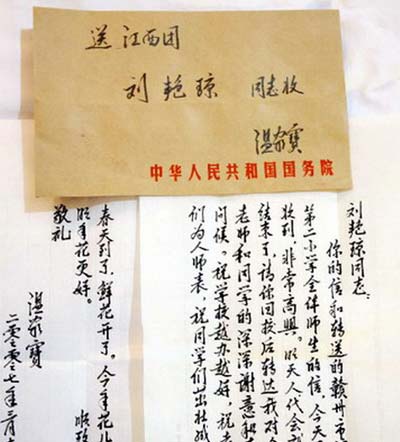 送 江西团
刘艳琼 同志收
温家寶
中华人民共和国国务院
刘艳琼同志：
你的信和转送的赣州市
第二小学全体师生的信，今天
收到，非常高興。明天人代会
结束了，请你回校后转达我对
老师和同学的深深谢意和
问候。祝学校越办越好，祝
们为人师表，祝同学们茁壮成
春天到了，鲜花开了。今年花
明年花更好。 顺致
敬礼
温家寶
二零零七年三月